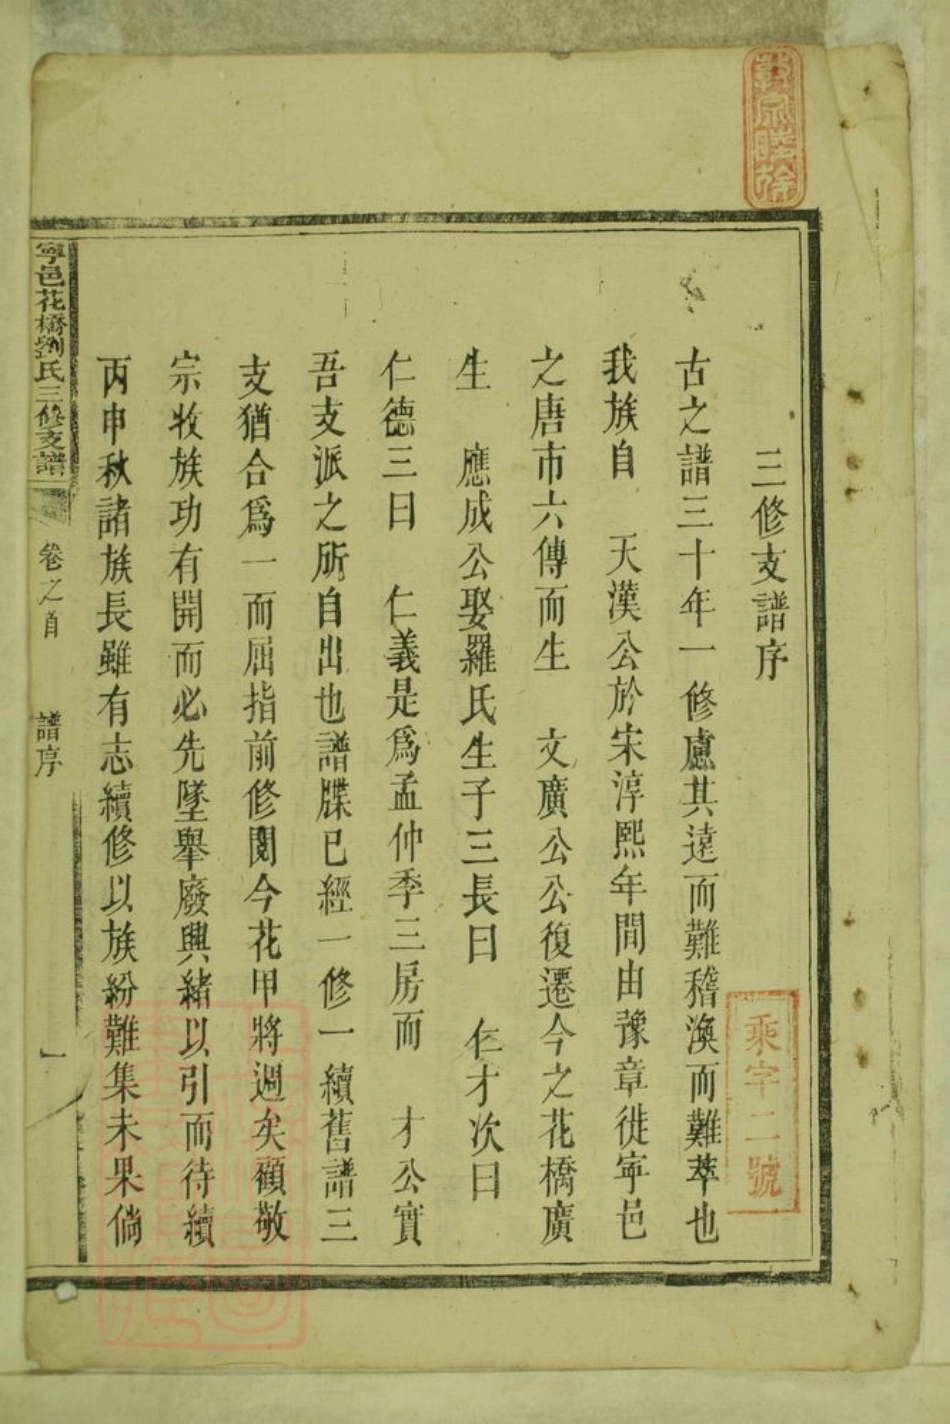 三修支譜序
古之譜三十年一修慮其遠而難稽渙而難萃也
我族自　天漢公於宋淳熙年間由豫章徙寜邑
之唐市六傳而生　文廣公公復遷今之花橋廣
生　應成公娶羅氏生子三長曰　仁才次曰
仁德三曰　仁義是爲孟仲季三房而　才公實
吾支派之所自出也譜牒已經一修一續舊譜三
支猶合爲一而屈指前修閱今花甲將週矣顧敬
宗牧族功有開而必先墜舉廢興緒以引而待續
丙申秋諸族長雖有志續修以族紛難集未果倘
寧邑花橋劉氏三修支譜　卷之首　譜序　一
乘字二號